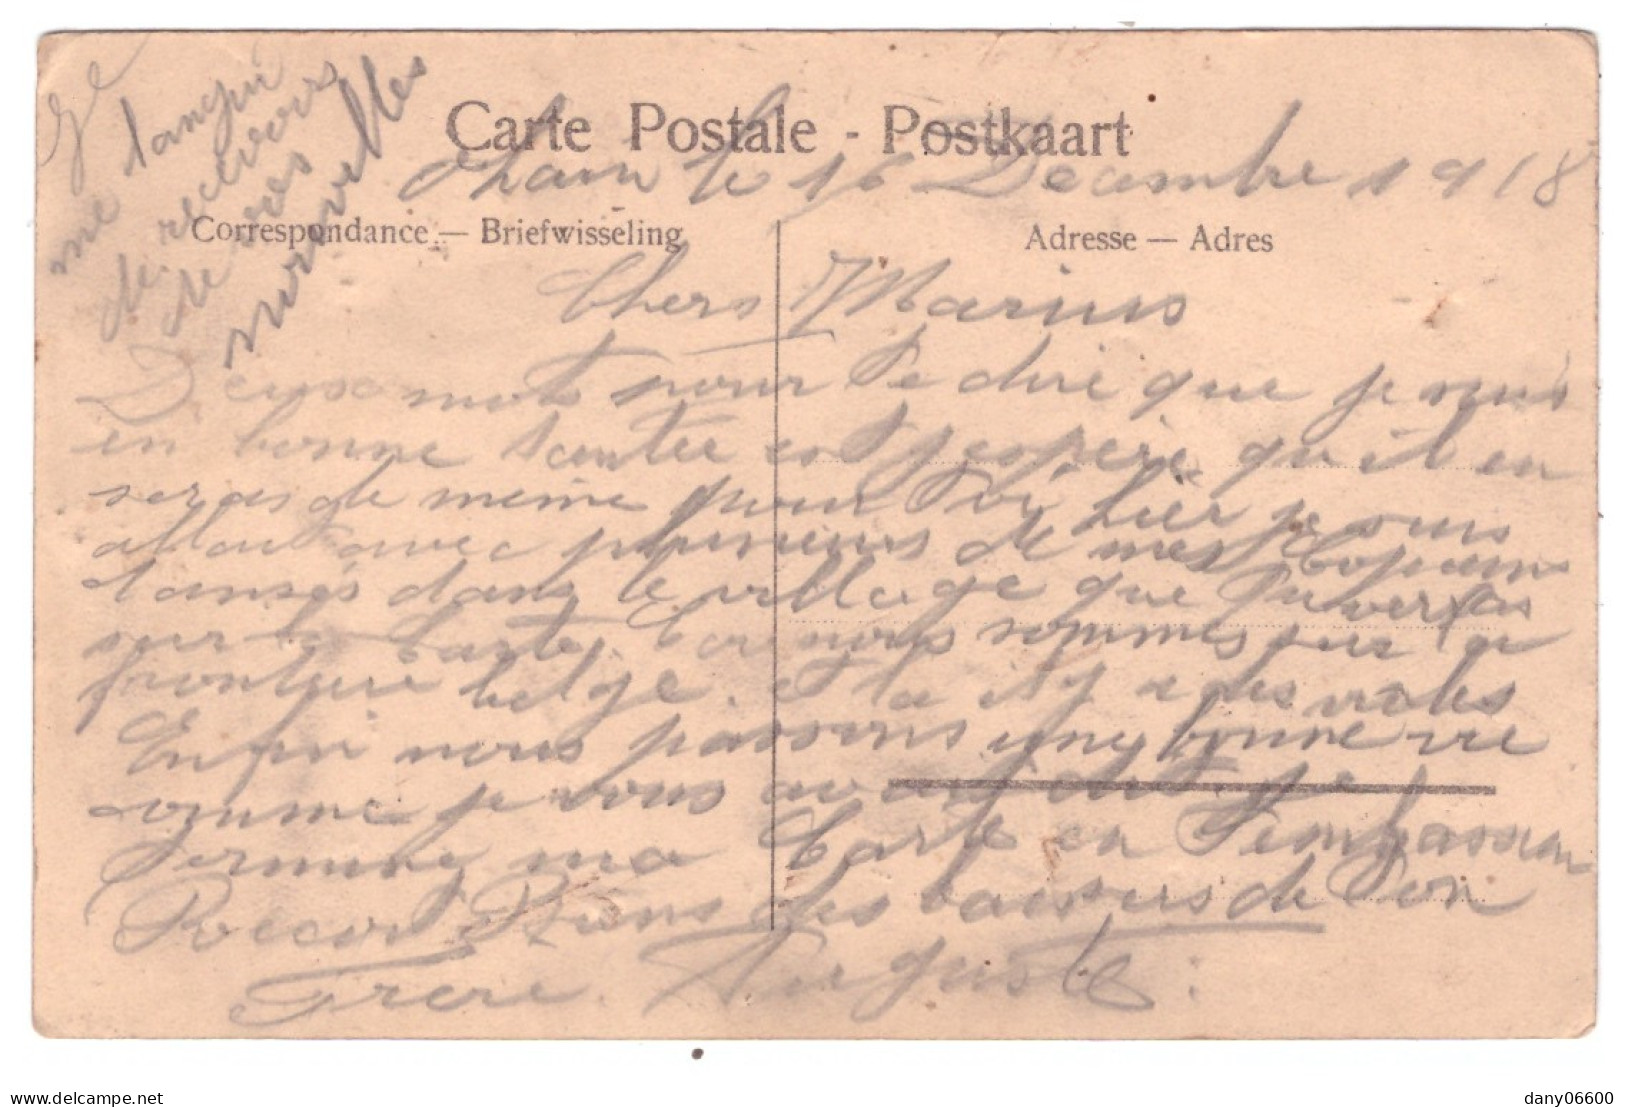 Carte Postale - Postkaart
le 16 Decembre 1918
Correspondance. — Briefwisseling
Adresse — Adres
Je
me langui
de recevoirs
de vos
nouvelles
Chers Marius
Deux mots pour Te dire que je suis
en bonne santée et j'espère qu'il en
seras de même pour Toi, hier je suis
allait avec plusieurs de mes Copains
dansés dans le village que Tu verras
sur la Carte. Car nous sommes sur la
frontière belge. et la il y a des
Enfin nous passons une bonne vie
comme je vous avait dit. Je
Termine ma Carte en T'embrassan
Recoi Biens des baisers de Ton
Frère. Auguste
delcampe.net
dany06600